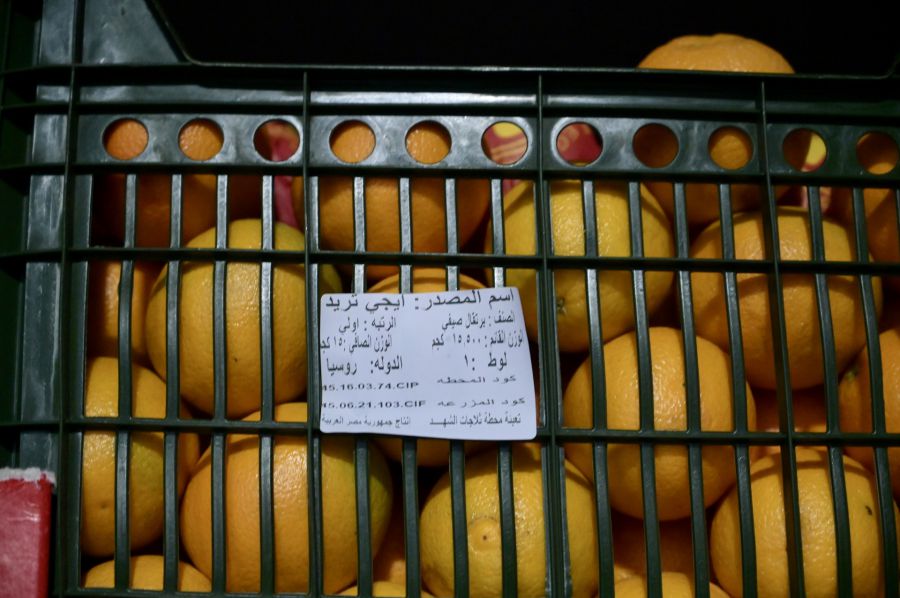 اسم المصدر: ايجي تريد
الصنف: برتقال صيفي الرتبه: اولي
لوزن القائم: ١٥,٥٠٠ كجم الوزن الصافي: ١٥ كجم
لوط ١: الدوله: روسيا
كود المحطه 45.16.03.74.CIP
كود المزرعه 45.06.21.103.CIF
تعبئة محطة ثلاجات الشهد انتاج جمهورية مصر العربية